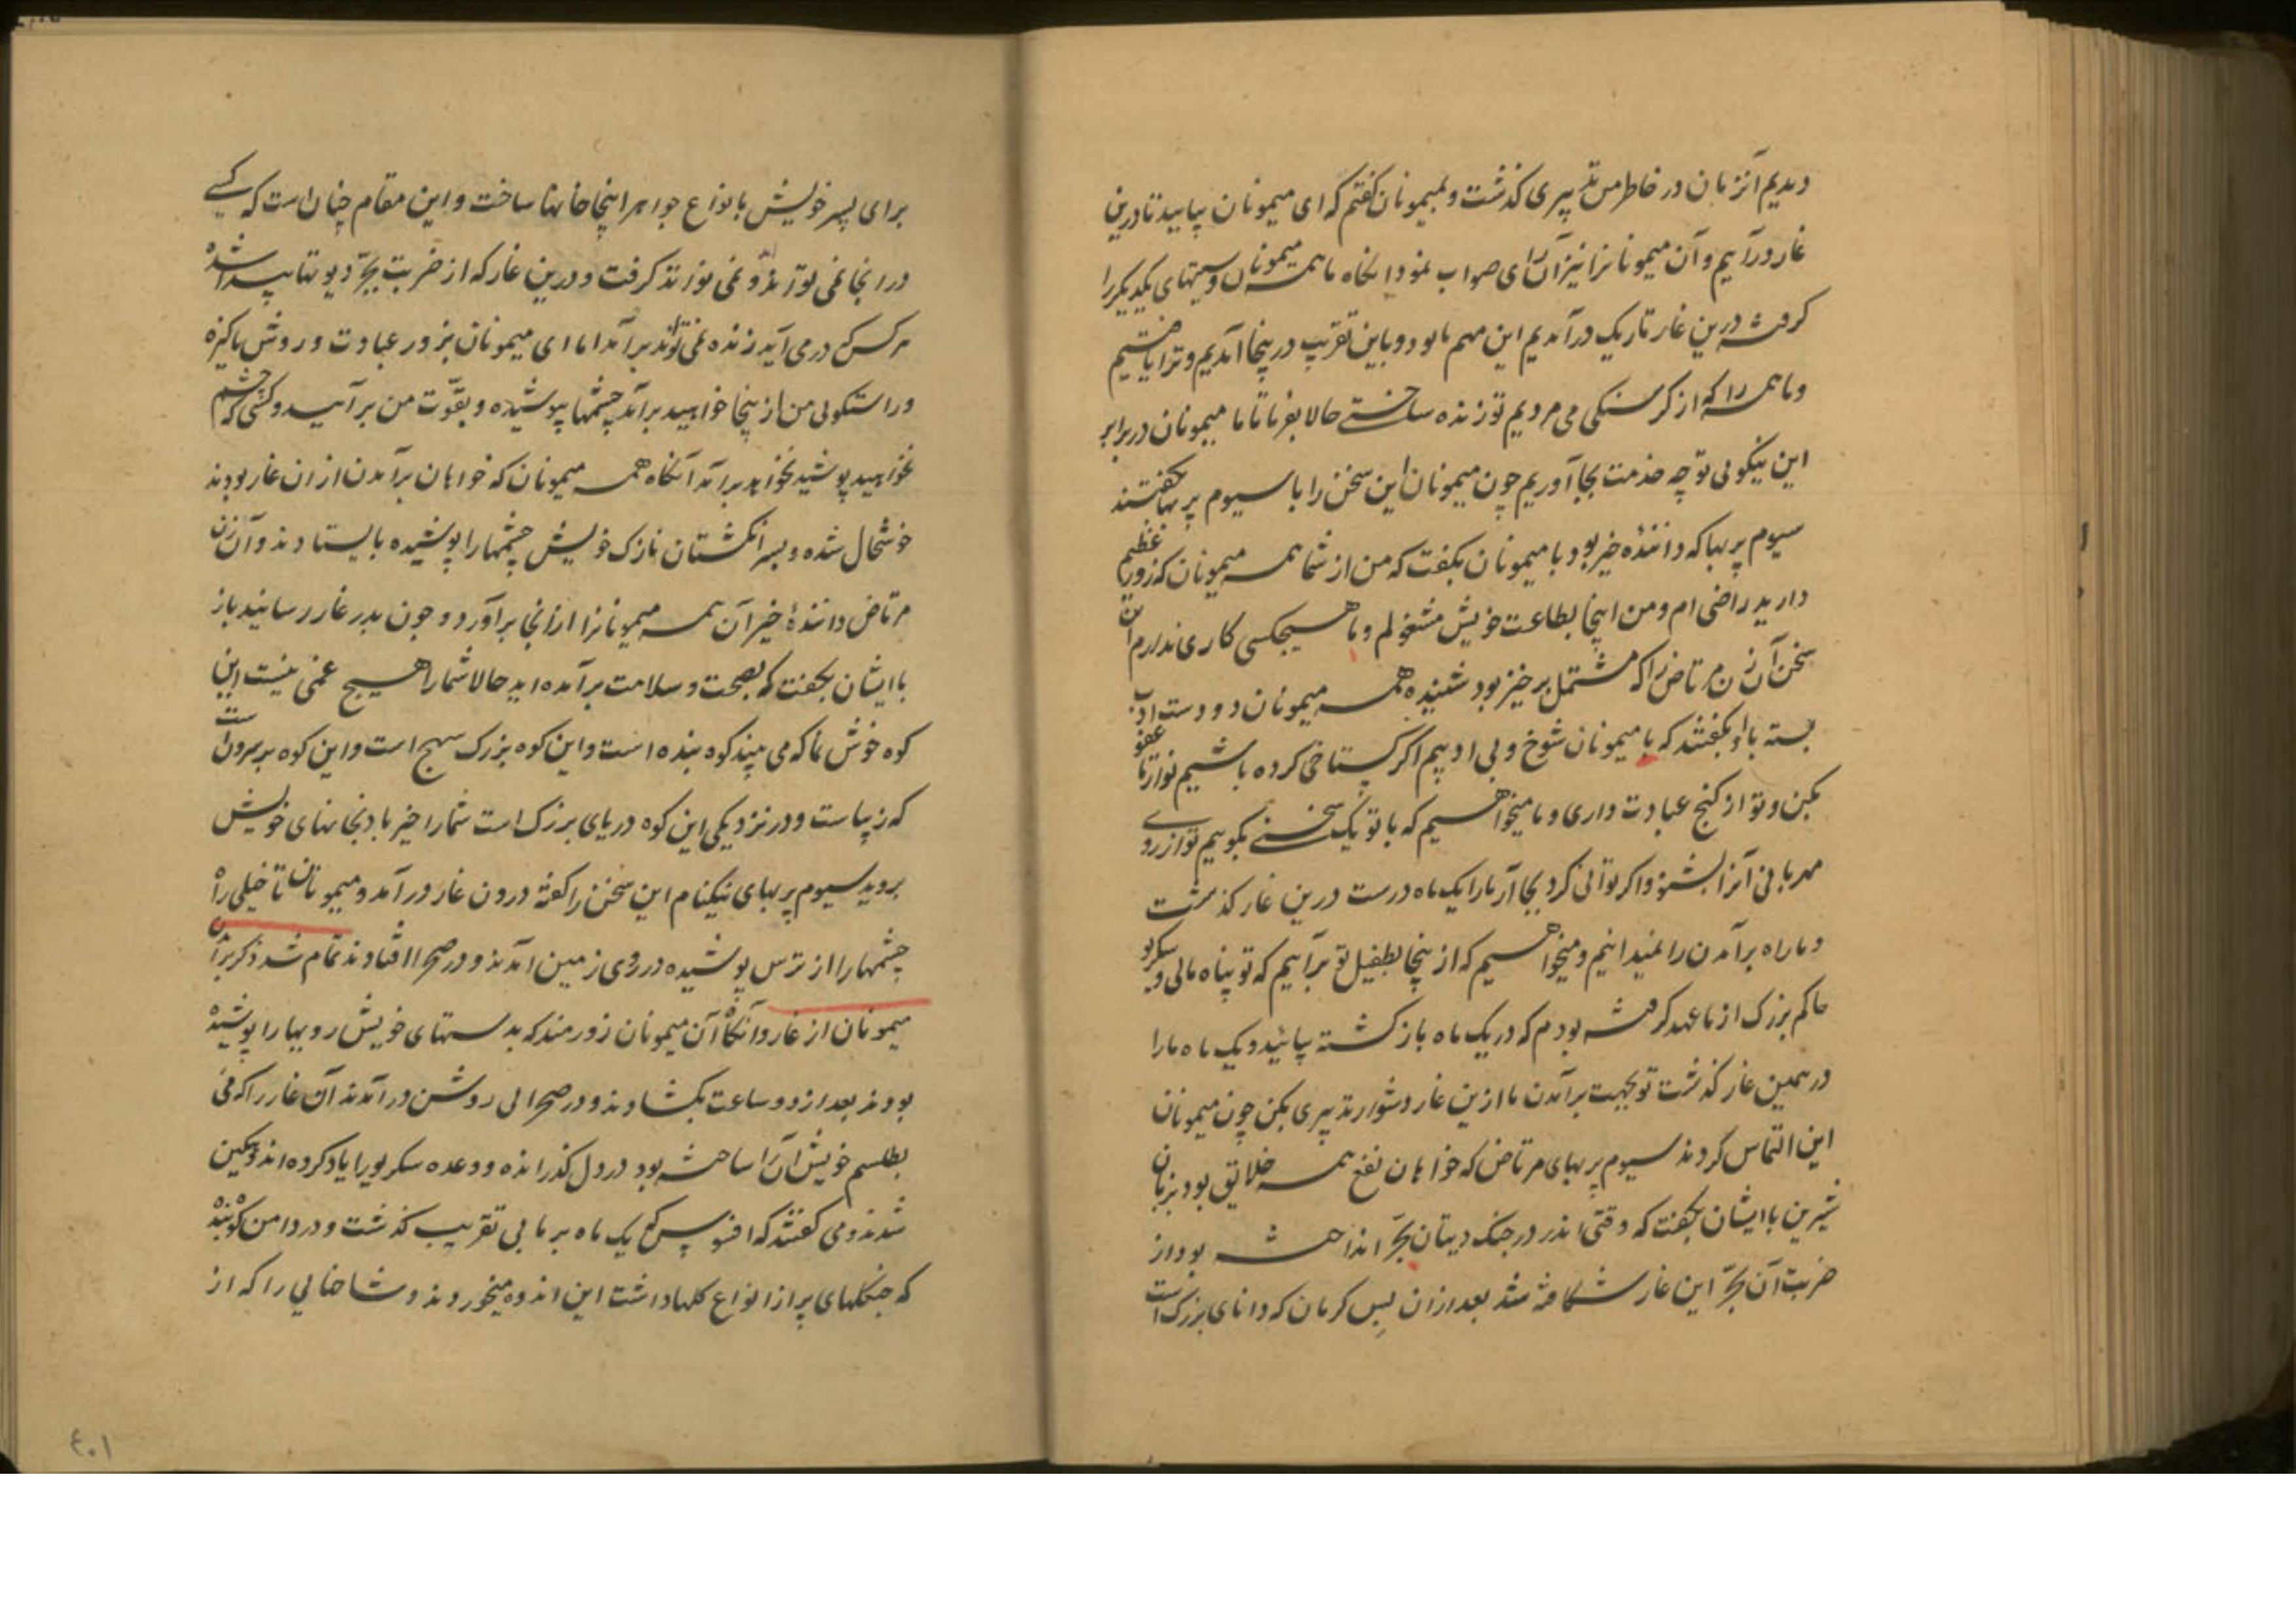 دیدیم آنزمان در خاطر من تدبیری گذشت و بمیمونان گفتم که ای میمونان بیایید تا درین
غار درآییم و آن میمونانرا نیز آن رای صواب نمود انگاه ما همه میمونان دستهای یکدیگر را
گرفته درین غار تاریک درآمدیم این مهم ما بود و باین تقریب درینجا آمدیم و ترا یافتیم
و ما همه را که از گرسنگی می مردیم تو زنده ساختی حالا بفرما تا ما میمونان در برابر
این نیکویی تو چه خدمت بجا آوریم چون میمونان این سخن را با سیوم پربها بگفتند
سیوم پربها که دانندهٔ خیر بود با میمونان بگفت که من از شما همه میمونان که زور عظیم
دارید راضی ام و من اینجا بطاعت خویش مشغولم و با هیچکسی کاری ندارم این
سخن آن زن مرتاض را که مشتمل بر خیر بود شنیده همه میمونان دو دست ادب
بسته با او بگفتند که ما میمونان شوخ و بی ادبیم اگر گستاخی کرده باشیم تو از ما عفو
بکن و تو از گنج عبادت داری و ما میخواهیم که با تو یک سخنی بگوییم تو از روی
مهربانی آنرا بشنو و اگر توانی کرد بجا آر ما را یک ماه درست درین غار گذشت
و ما راه برآمدن را نمیدانیم و میخواهیم که از ینجا بطفیل تو برآییم که تو پناه مایی و سکریو
حاکم بزرگ از ما عهد گرفته بودم که در یک ماه بازگشته بیائید و یک ماه ما را
در همین غار گذشت تو بجهت برآمدن ما ازین غار دشوار تدبیری بکن چون میمونان
این التماس کردند سیوم پربهای مرتاض که خواهان نفع همه خلایق بود بزبان
شیرین با ایشان بگفت که وقتی اندر در جنگ دیتان بجر انداخته بود از
ضربت آن بجر این غار شکافته شد بعد ازان بس کرمان که دانای بزرگ است
برای پسر خویش بانواع جواهر اینجا خانها ساخت و این مقام چنان است که کسی
در اینجا نمی تواند و نمی تواند گرفت و درین غار که از ضربت بجر دیوتها پیدا شده
هر کس که درمی آید زنده نمی تواند برآمد اما ای میمونان بزور عبادت و روش پاکیزه
و راستگویی من از ینجا خواهید برآمد چشمها بپوشیده و بقوّت من برآیید و کسی که چشم
نخواهید پوشید نخواهد برآمد آنگاه همه میمونان که خواهان برآمدن ازان غار بودند
خوشحال شده و بسر انگشتان نازک خویش چشمها را پوشیده بایستادند و آن زن
مرتاض دانندهٔ خیر آن همه میمونانرا ازانجا برآورد و چون بدر غار رسانید باز
با ایشان بگفت که بصحت و سلامت برآمده اید حالا شما را هیچ غمی نیست این
کوه خوش نما که می بیند کوه بنده است و این کوه بزرگ سهج است و این کوه برسرون است
که زیباست و در نزدیکی این کوه دریای بزرگ است شما را خیر باد بخانهای خویش
بروید سیوم پربهای نیکنام این سخن را گفته درون غار درآمد و میمونان تا خیلی راه
چشمها را از ترس پوشیده در روی زمین آمدند و در صحرا افتادند تمام شد ذکر برآمدن
میمونان از غار و آنگاه آن میمونان زورمند که بدستهای خویش رویها را پوشیده
بودند بعد از دو ساعت بگشادند و در صحرایی روشن درآمدند آن غار را که می
بطلسم خویش آن را ساخته بود در دل گذرانده و وعده سکریو را یاد کرده اندوهگین
شدند و می گفتند که افسوس که یک ماه بر ما بی تقریب گذشت و در دامن کوه بنده
که جنگلهای پر از انواع گلها داشت این اندوه میخوردند و شاخهایی را که از
۴۰۱